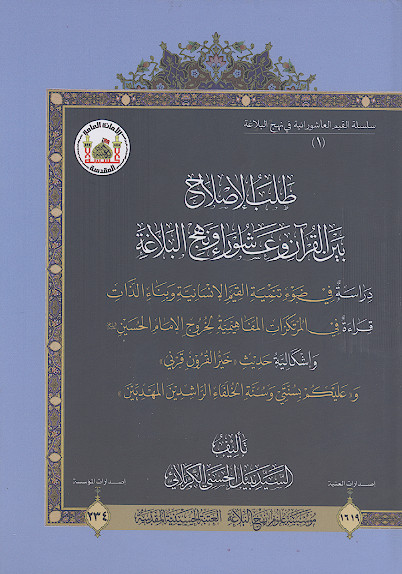 سلسلة القيم العاشورائية في نهج البلاغة
(١)
الأمانة العامة
المقدسة
طلب الإصلاح
بين القرآن وعاشوراء ونهج البلاغة
دراسة في ضوء تنمية القيم الإنسانية وبناء الذات
قراءة في المرتكزات المفاهيمية لخروج الإمام الحسين
وإشكالية حديث «خير القرون قرني»
و«عليكم بسنتي وسنة الخلفاء الراشدين المهديين»
تأليف
السيد نبيل الحسني الكربلائي
إصدارات العتبة
١٦١٩
إصدارات المؤسسة
٢٣٤
مؤسسة علوم نهج البلاغة العتبة الحسينية المقدسة